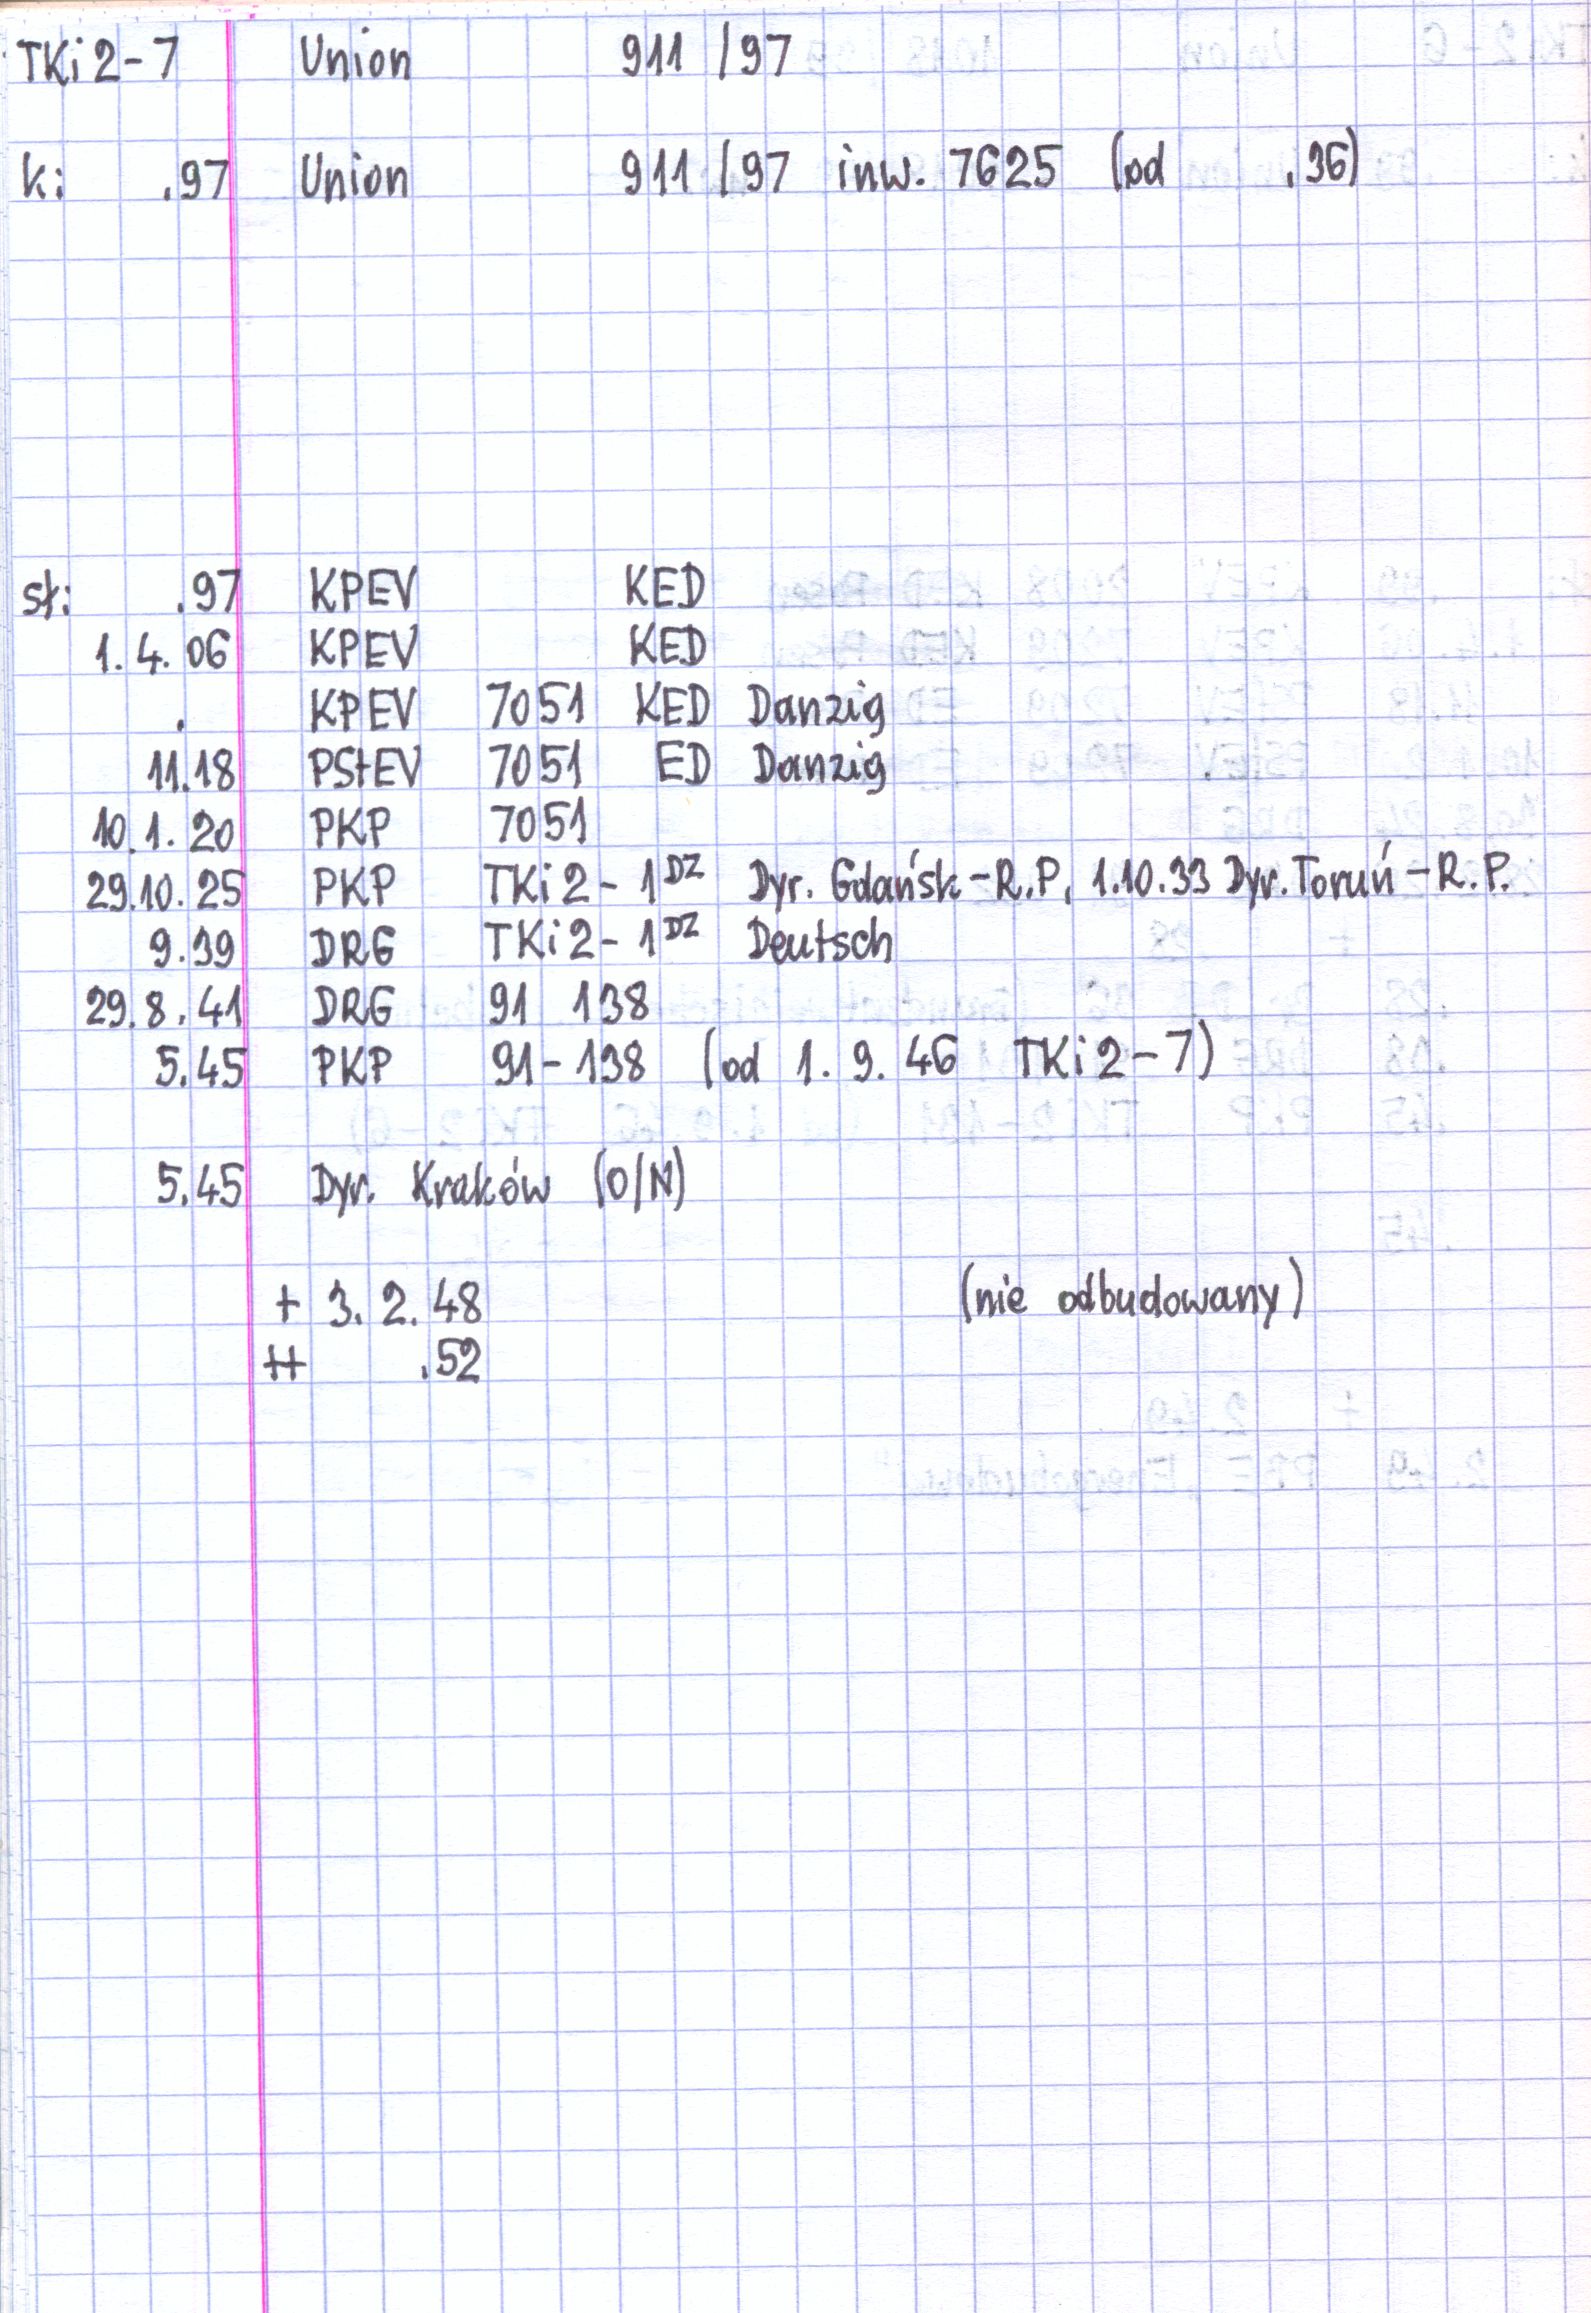 TKi2-7 Union 911/97
k: .97 Union 911/97 inw. 7625 (od .36)
sł: .97 KPEV KED
1.4.06 KPEV KED
. KPEV 7051 KED Danzig
11.18 PStEV 7051 ED Danzig
10.1.20 PKP 7051
29.10.25 PKP TKi2-1DZ Dyr. Gdańsk-R.P, 1.10.33 Dyr. Toruń-R.P.
9.39 DRG TKi2-1DZ Deutsch
29.8.41 DRG 91 138
5.45 PKP 91-138 (od 1.9.46 TKi2-7)
5.45 Dyr. Kraków (O/N)
+ 3.2.48 (nie odbudowany)
++ .52